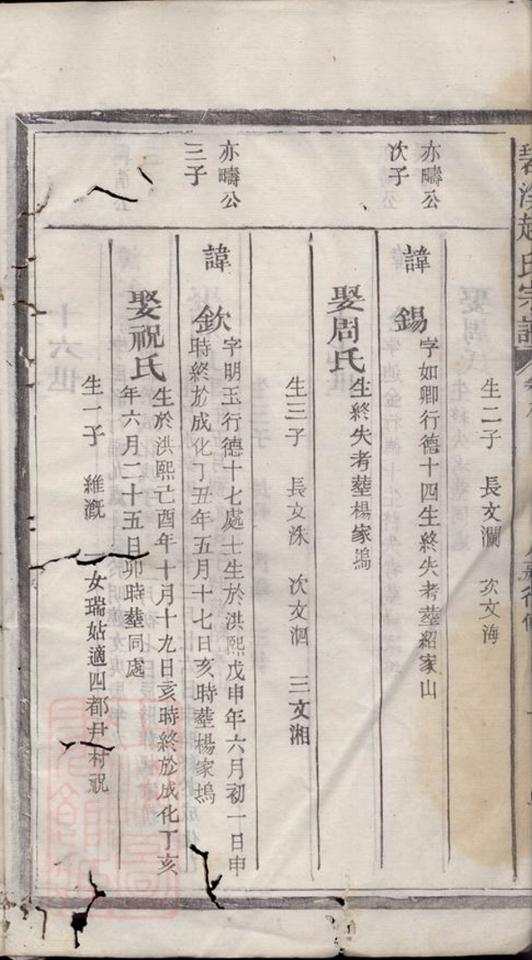 生二子 長文瀾 次文海
亦疇公
次子
諱錫 字如卿行德十四生終失考塟紹家山
娶周氏 生終失考塟楊家塢
生三子 長文洙 次文泂 三文湘
亦疇公
三子
諱欽 字明玉行德十七處士生於洪熙戊申年六月初一日申
時終於成化丁丑年五月十七日亥時塟楊家塢
娶祝氏 生於洪熙己酉年十月十九日亥時終於成化丁亥
年六月二十五日卯時塟同處
生一子 維溉 一女瑞姑適四都尹村祝